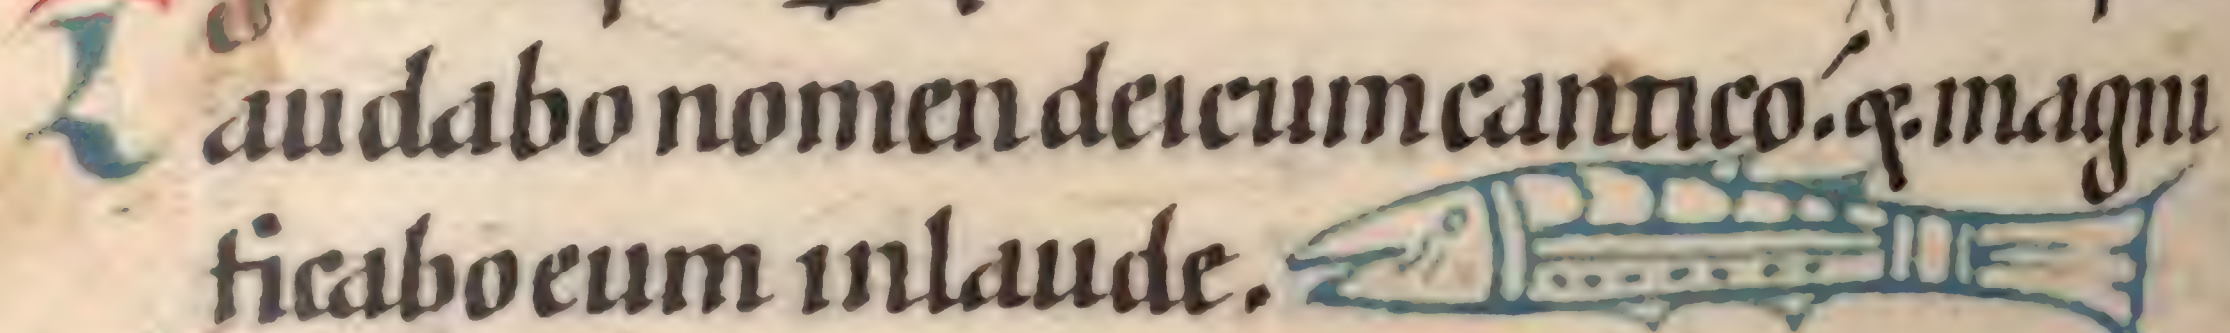 Laudabo nomen dei cum cantico. &. magni
ficabo eum in laude.